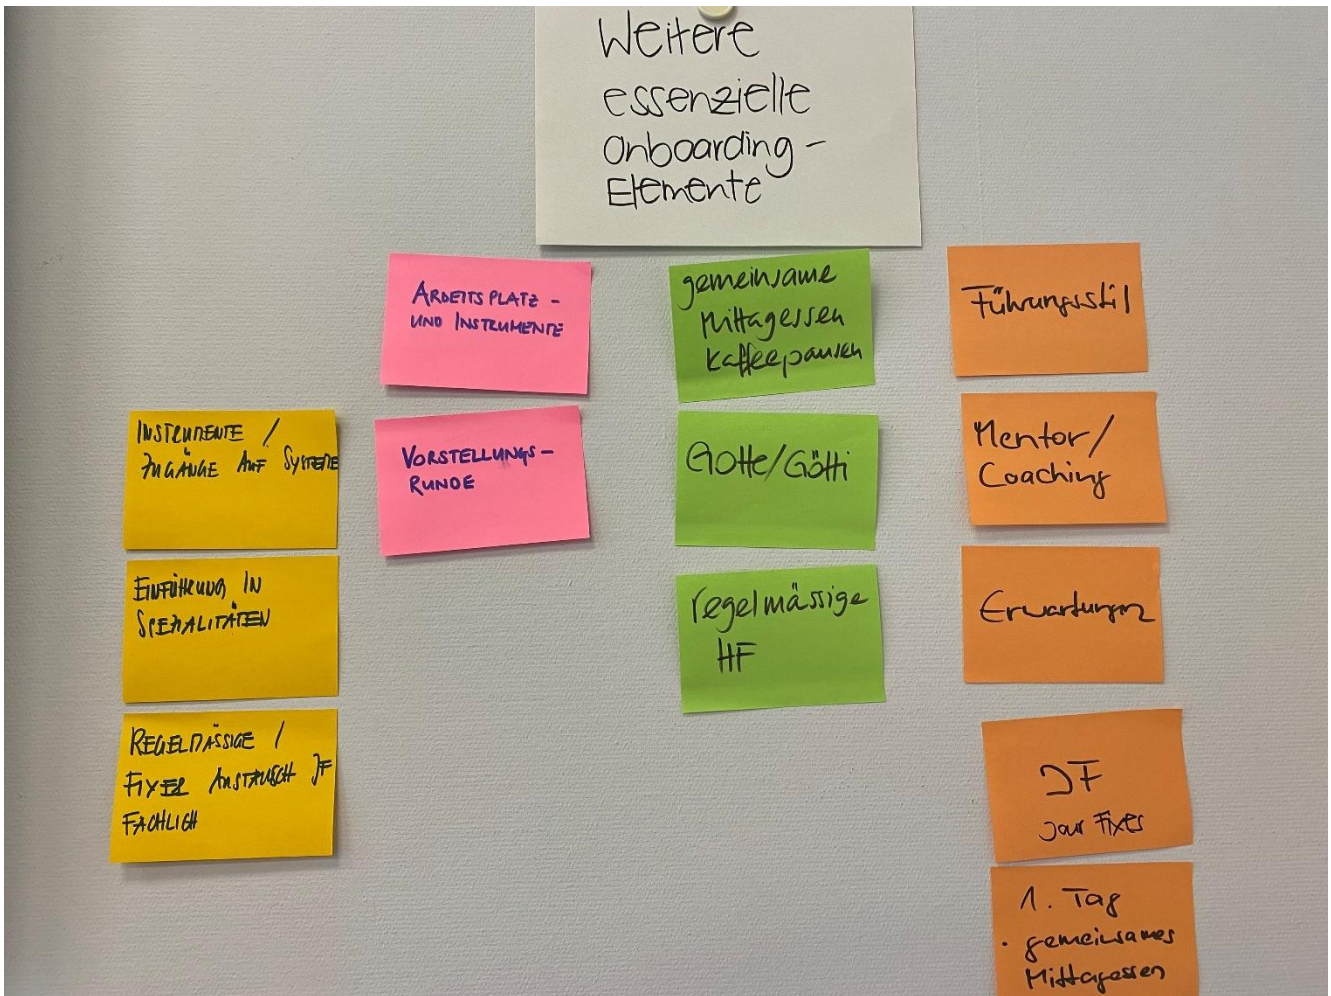 Weitere
essenzielle
Onboarding-
Elemente
INSTRUMENTE /
ZUGÄNGE AUF SYSTEME
EINFÜHRUNG IN
SPEZIALITÄTEN
REGELMÄSSIGE /
FIXER AUSTAUSCH JF
FACHLICH
ARBEITSPLATZ -
UND INSTRUMENTE
VORSTELLUNGS-
RUNDE
gemeinsame
Mittagessen
Kaffeepausen
Gotte/Götti
regelmässige
HF
Führungsstil
Mentor/
Coaching
Erwartungen
JF
Jour Fixes
1. Tag
· gemeinsames
Mittagessen